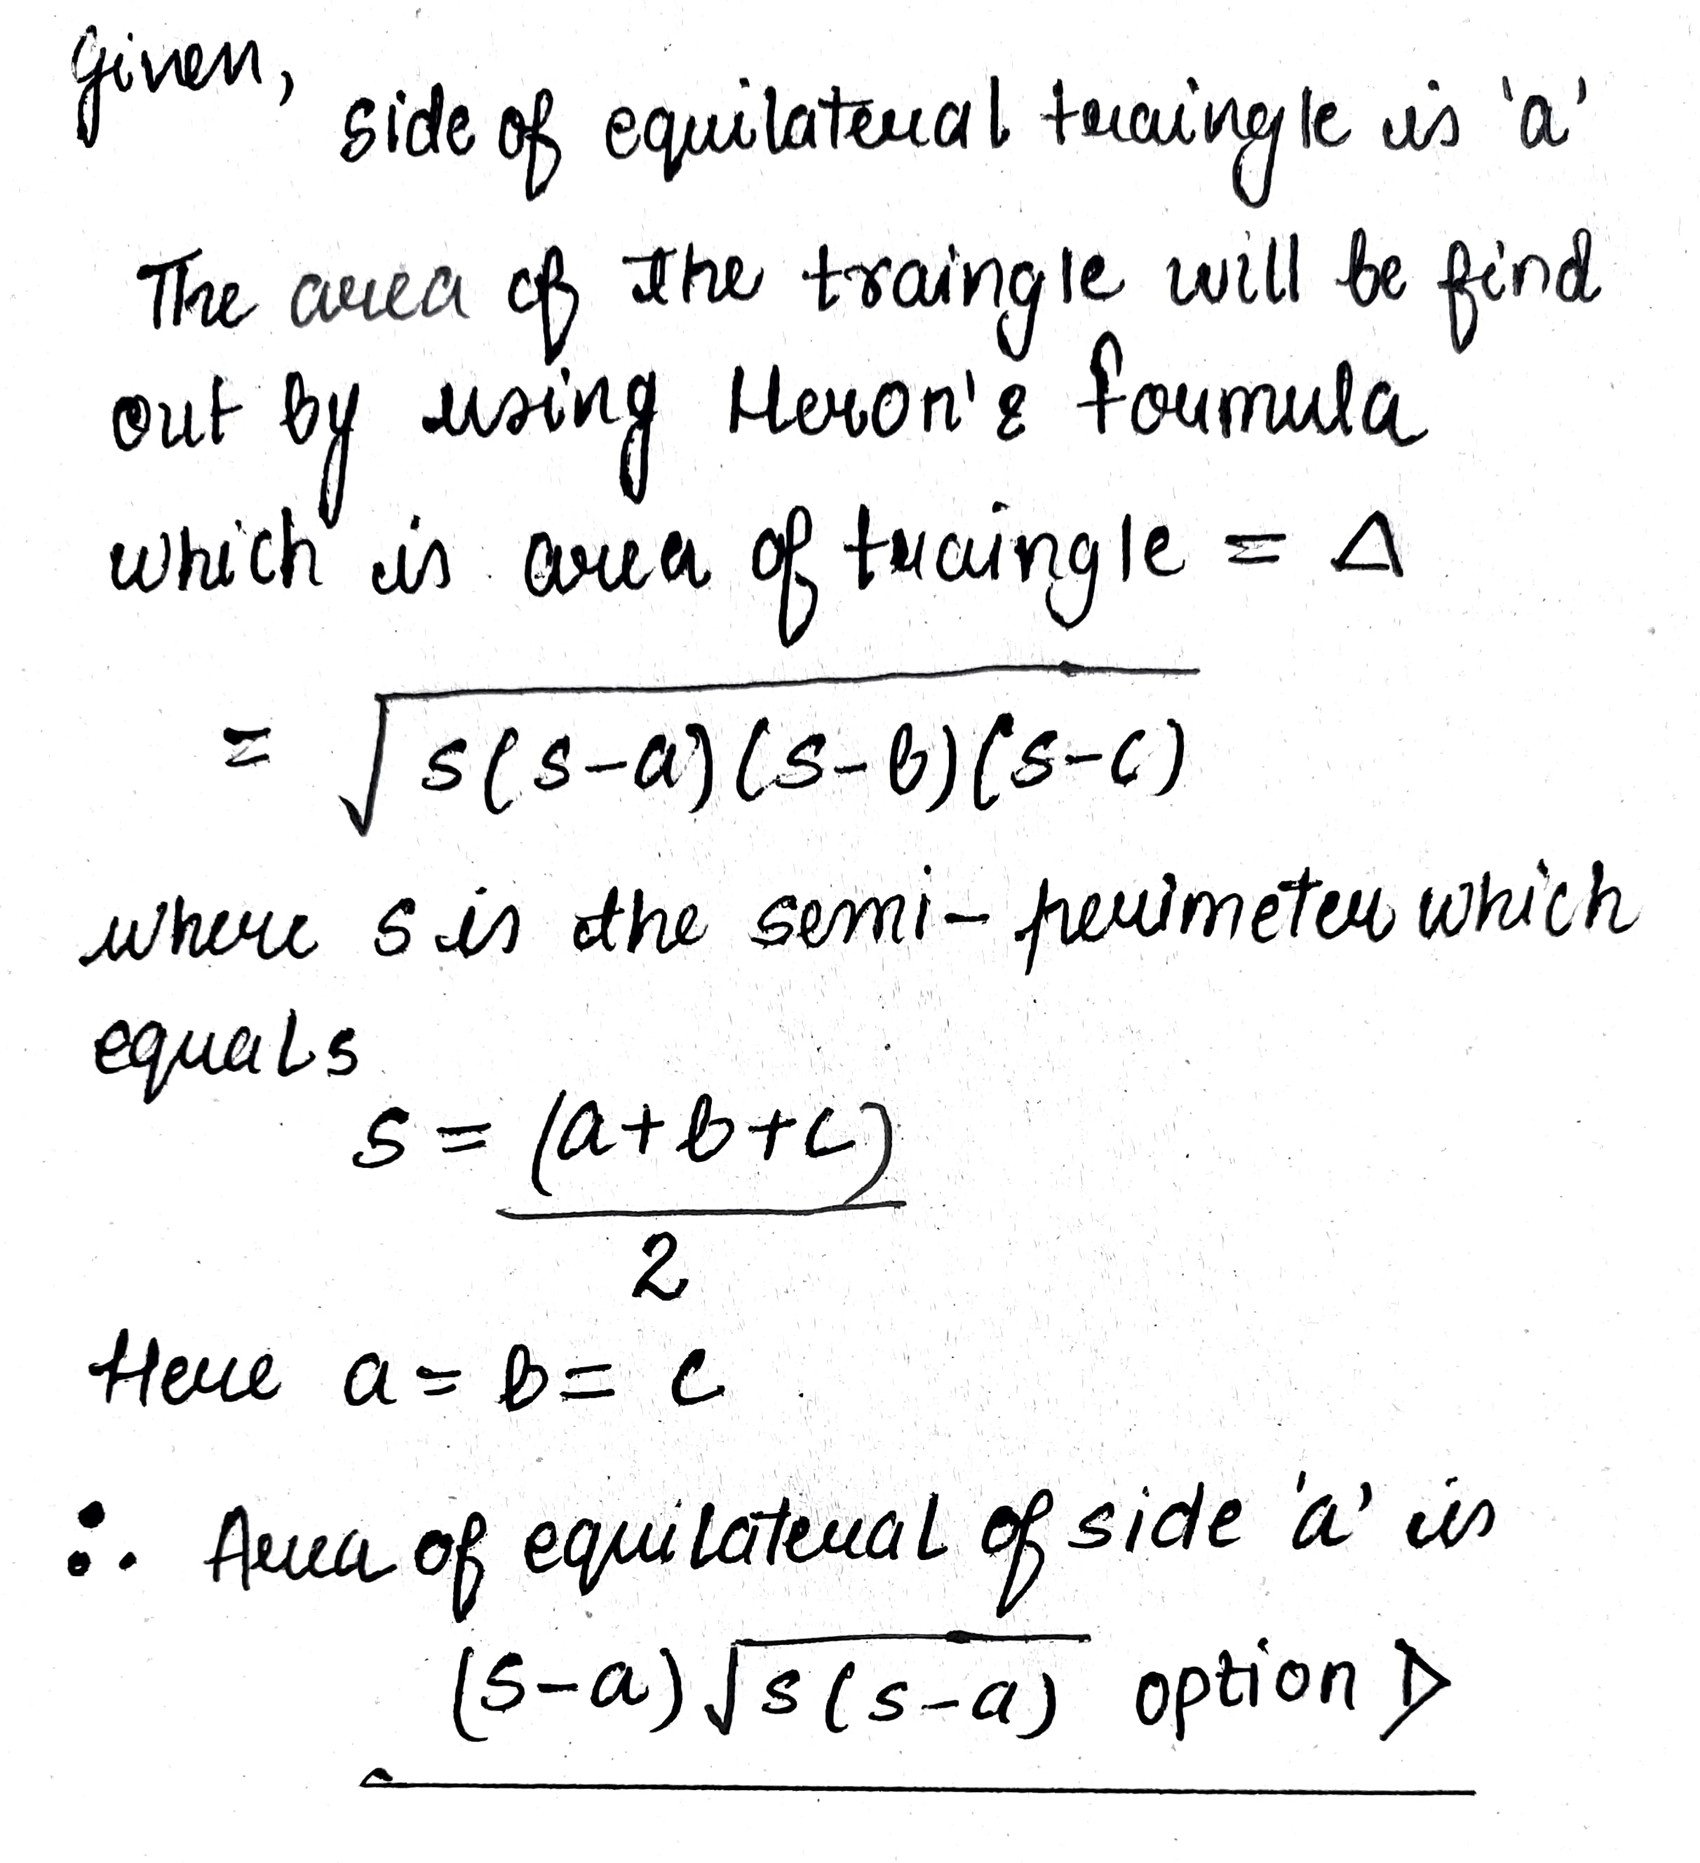 Given,
side of equilateral traingle is 'a'
The area of the traingle will be find
out by using Heron's formula
which is area of traingle = Δ
= √s(s-a)(s-b)(s-c)
where s is the semi-perimeter which
equals
s = (a+b+c)
2
Here a = b = c
∴ Area of equilateral of side 'a' is
(s-a)√s(s-a) option D